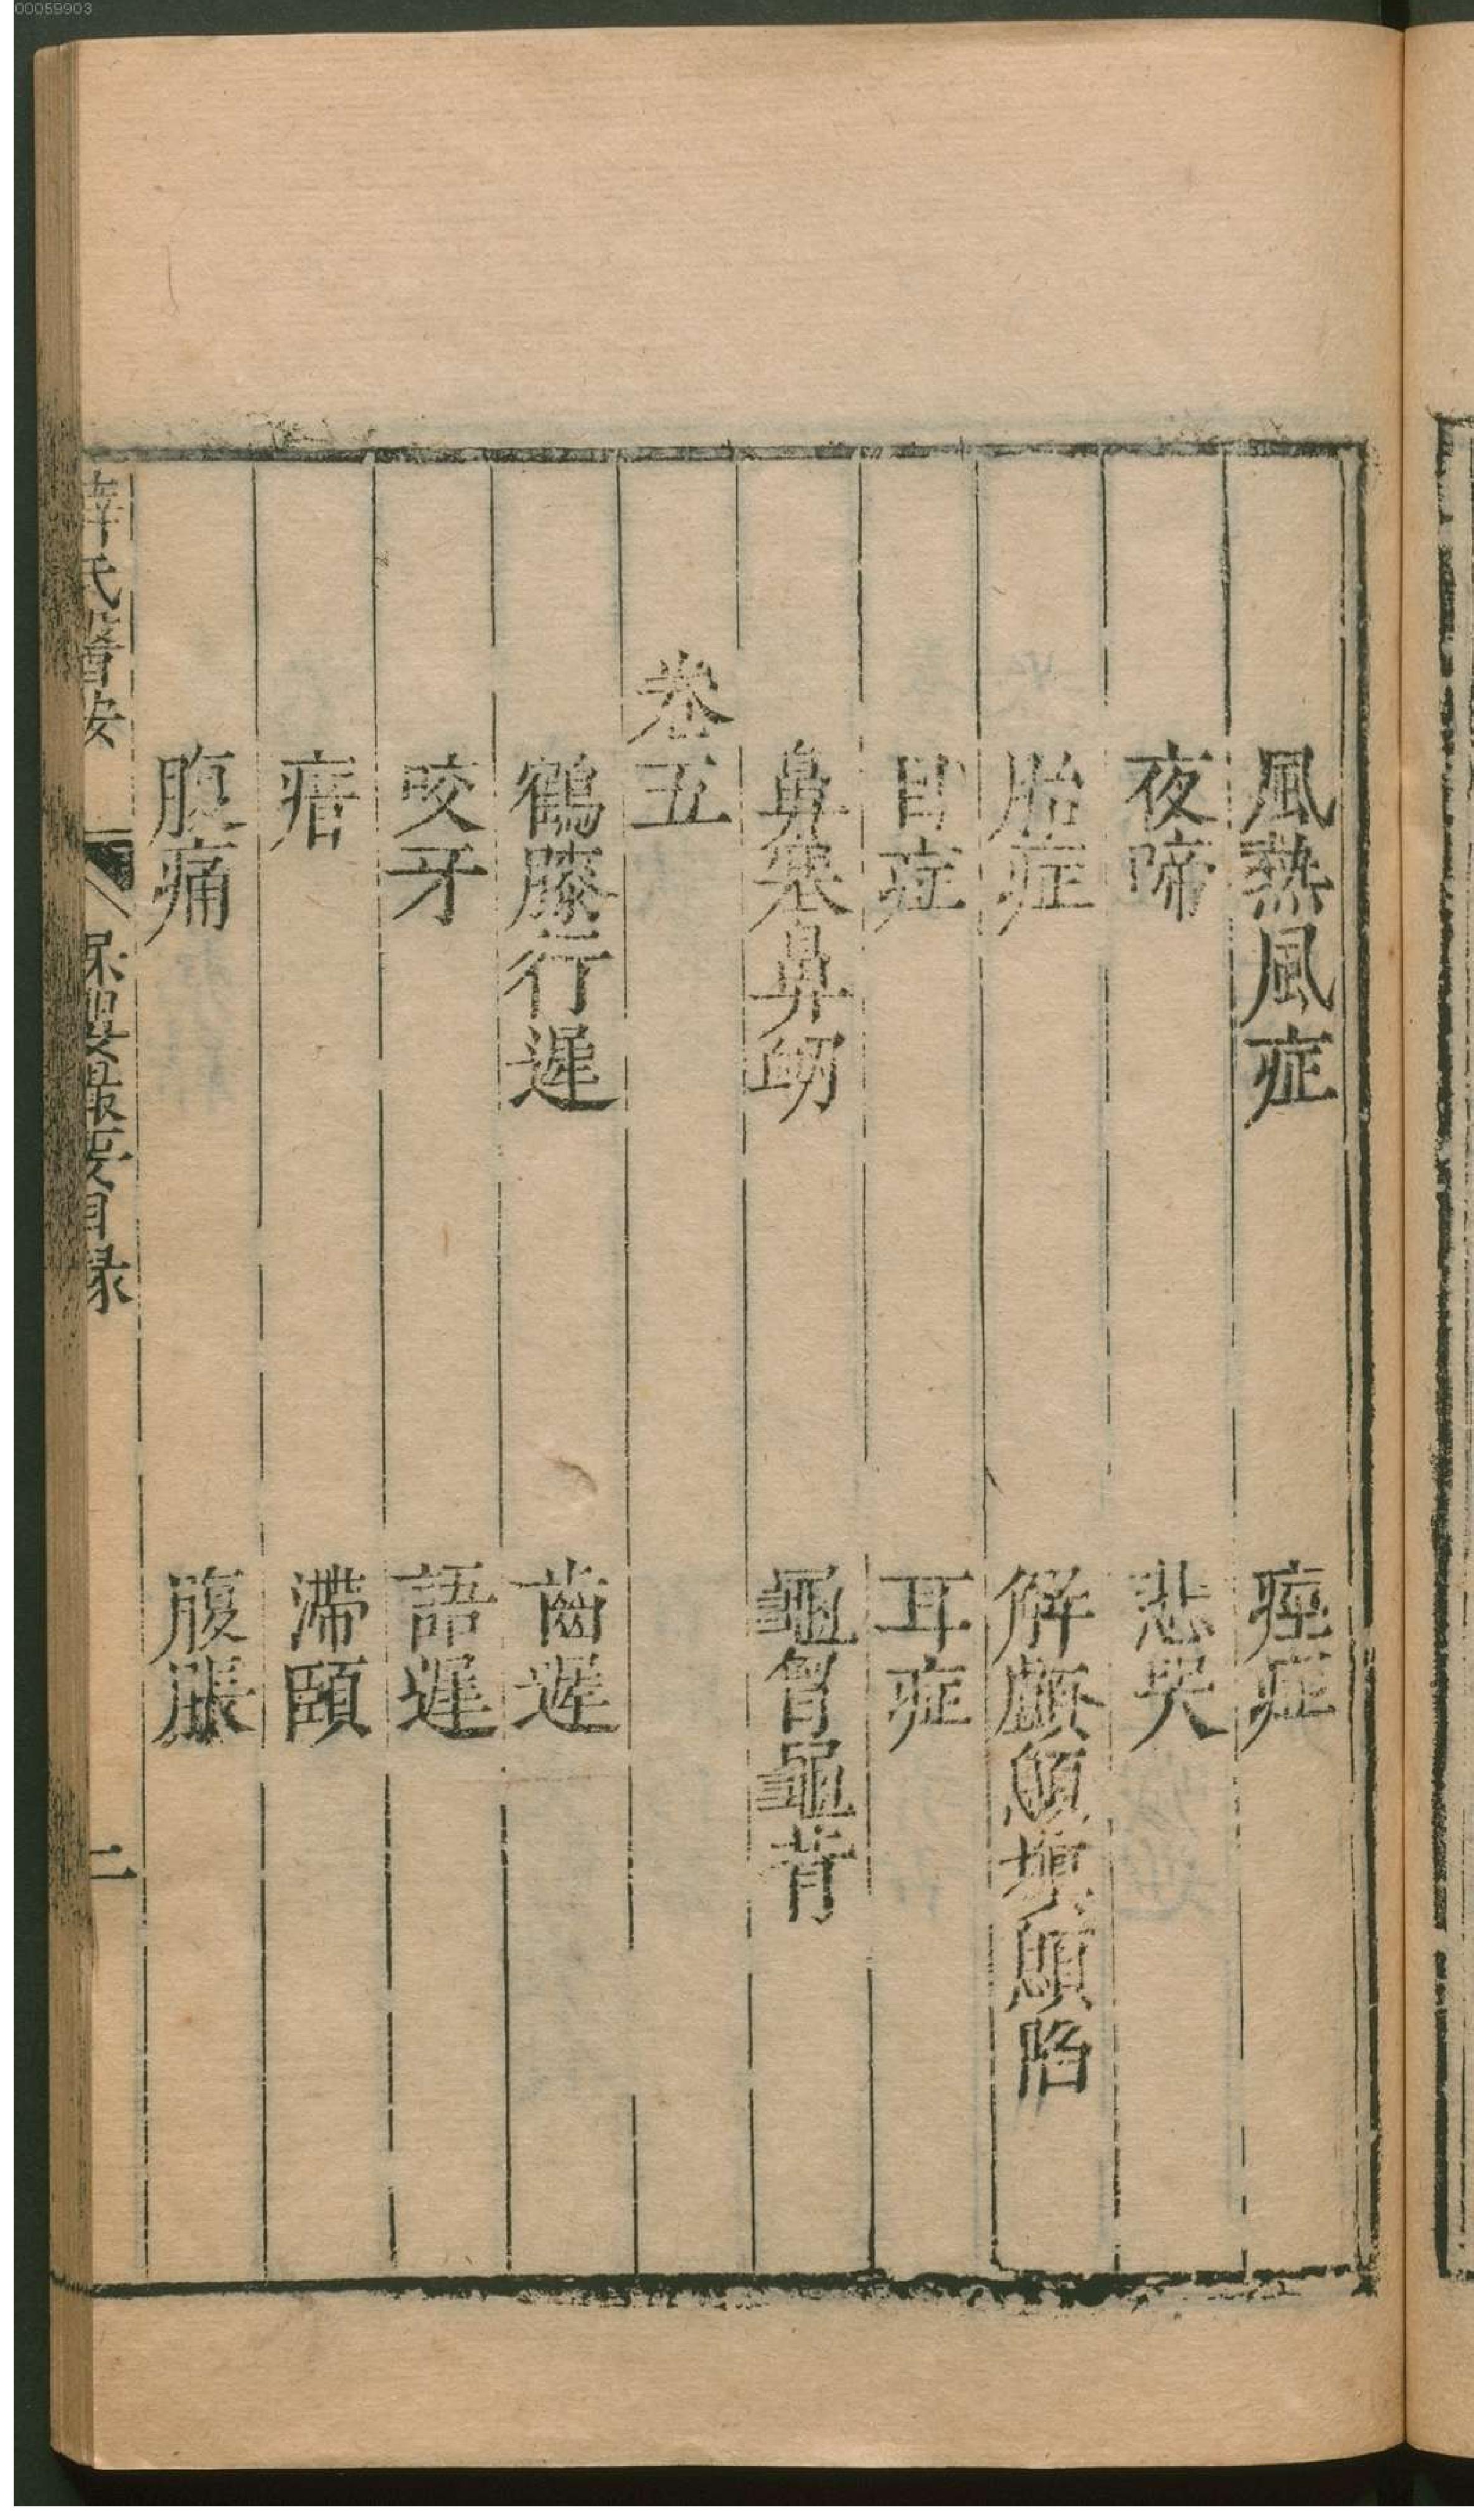 00059903
風熱風症　痙症
夜啼　悲哭
胎症　解顱顖塡顖陷
目症　耳症
鼻塞鼻衂　龜胷龜背
卷五
鶴膝行遲　齒遲
咬牙　語遲
瘖　滯頤
腹痛　腹脹
薛氏醫按　保嬰撮要目録　二